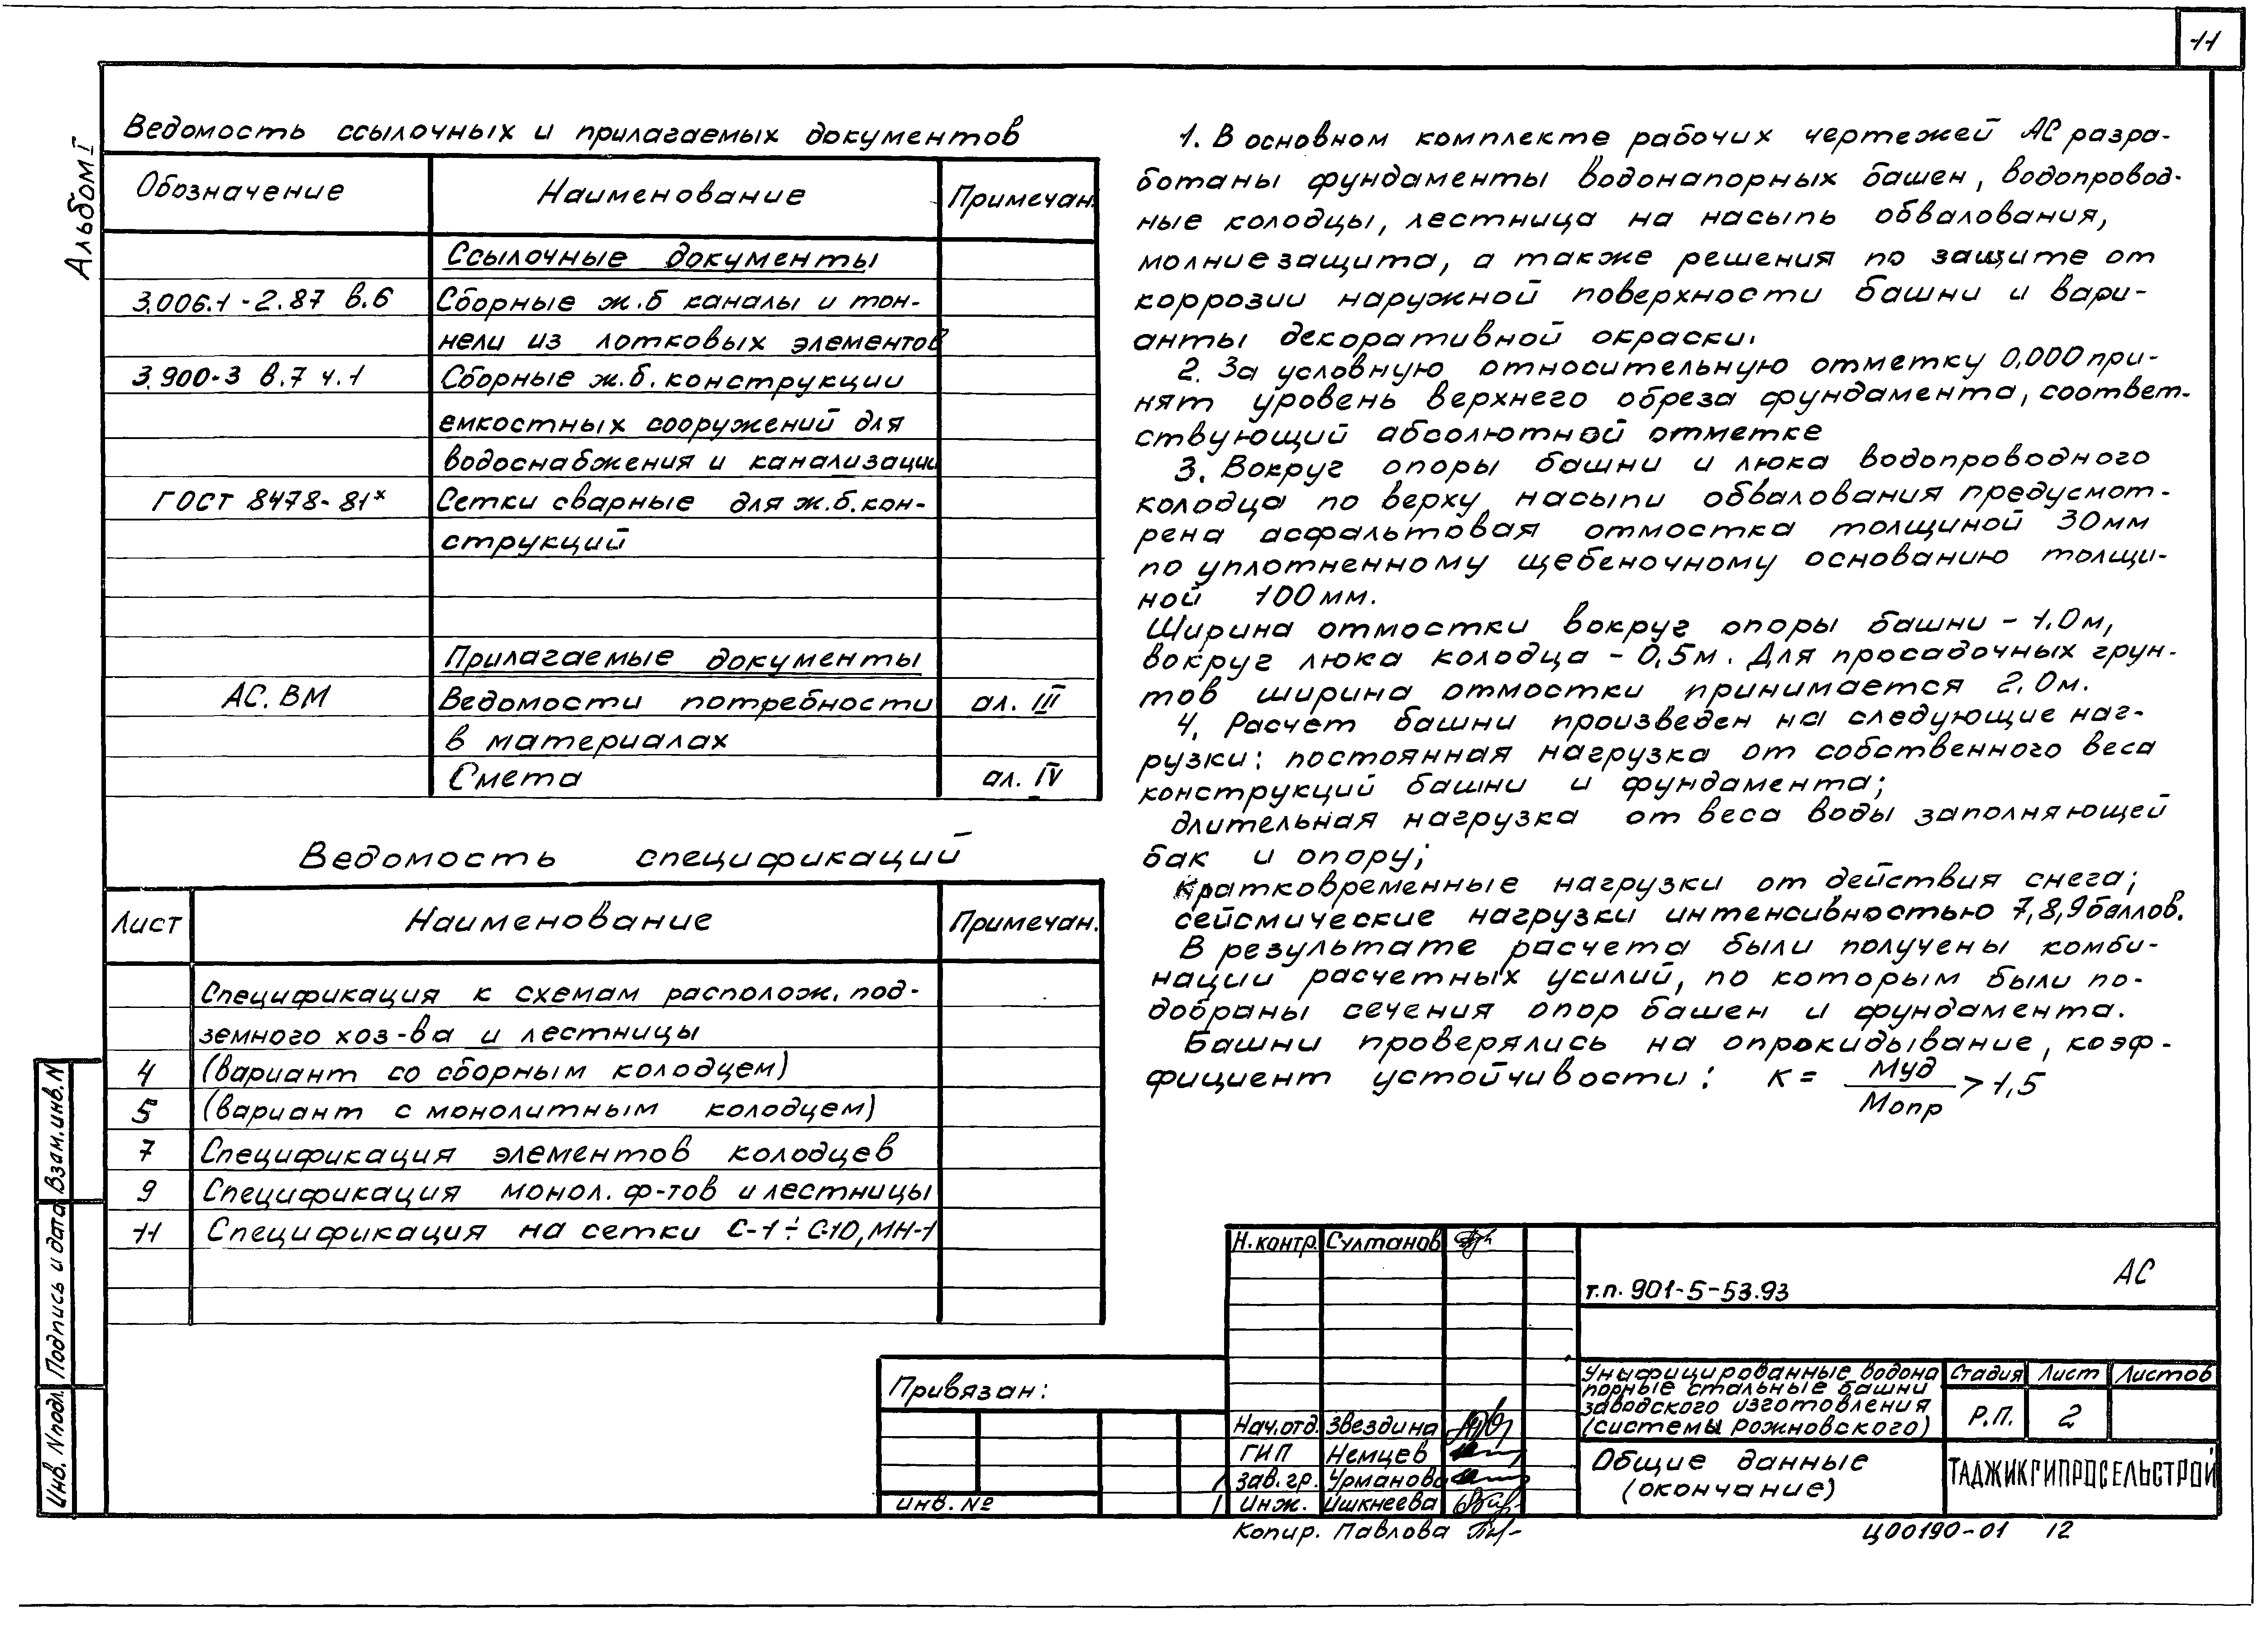 11
Альбом I
Ведомость ссылочных и прилагаемых документов
Обозначение Наименование Примечан.
Ссылочные документы
3.006.1-2.87 в.6 Сборные ж.б каналы и тон-
нели из лотковых элементов
3.900-3 в.7 ч.1 Сборные ж.б. конструкции
емкостных сооружений для
водоснабжения и канализации
ГОСТ 8478-81* Сетки сварные для ж.б.кон-
струкций
Прилагаемые документы
АС. ВМ Ведомости потребности ал. III
в материалах
Смета ал. IV
Ведомость спецификаций
Лист Наименование Примечан.
Спецификация к схемам располож. под-
земного хоз-ва и лестницы
4 (вариант со сборным колодцем)
5 (вариант с монолитным колодцем)
7 Спецификация элементов колодцев
9 Спецификация монол. ф-тов и лестницы
11 Спецификация на сетки С-1÷С-10, МН-1
1. В основном комплекте рабочих чертежей АС разра-
ботаны фундаменты водонапорных башен, водопровод-
ные колодцы, лестница на насыпь обвалования,
молниезащита, а также решения по защите от
коррозии наружной поверхности башни и вари-
анты декоративной окраски.
2. За условную относительную отметку 0,000 при-
нят уровень верхнего обреза фундамента, соответ-
ствующий абсолютной отметке
3. Вокруг опоры башни и люка водопроводного
колодца по верху насыпи обвалования предусмот-
рена асфальтовая отмостка толщиной 30мм
по уплотненному щебеночному основанию толщи-
ной 100мм.
Ширина отмостки вокруг опоры башни - 1.0м,
вокруг люка колодца - 0,5м. Для просадочных грун-
тов ширина отмостки принимается 2.0м.
4. Расчет башни произведен на следующие наг-
рузки: постоянная нагрузка от собственного веса
конструкций башни и фундамента;
длительная нагрузка от веса воды заполняющей
бак и опору;
кратковременные нагрузки от действия снега;
сейсмические нагрузки интенсивностью 7,8,9 баллов.
В результате расчета были получены комби-
нации расчетных усилий, по которым были по-
добраны сечения опор башен и фундамента.
Башни проверялись на опрокидывание, коэф-
фициент устойчивости: к = Муд / Мопр > 1,5
Взам.инв.N
Подпись и дата
Инв. N подл.
Привязан:
инв. №
Н.контр. Султанов
Нач.отд. Звездина
ГИП Немцев
Зав.гр. Урманова
Инж. Ишкнеева
Копир. Павлова
т.п. 901-5-53.93 АС
Унифицированные водона
порные стальные башни
заводского изготовления
(системы Рожновского)
Стадия Лист Листов
Р.П. 2
Общие данные
(окончание)
ТАДЖИКГИПРОСЕЛЬСТРОЙ
Ц00190-01 12